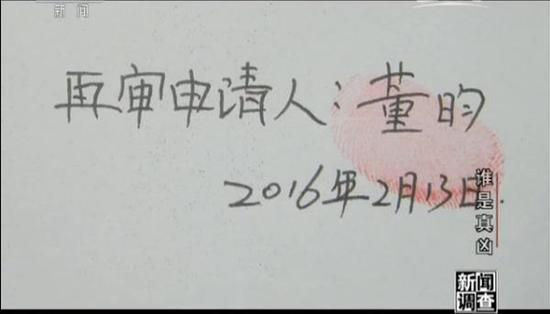 新闻
再审申请人：董昀
2016年2月13日.
谁是真凶
新闻
调查